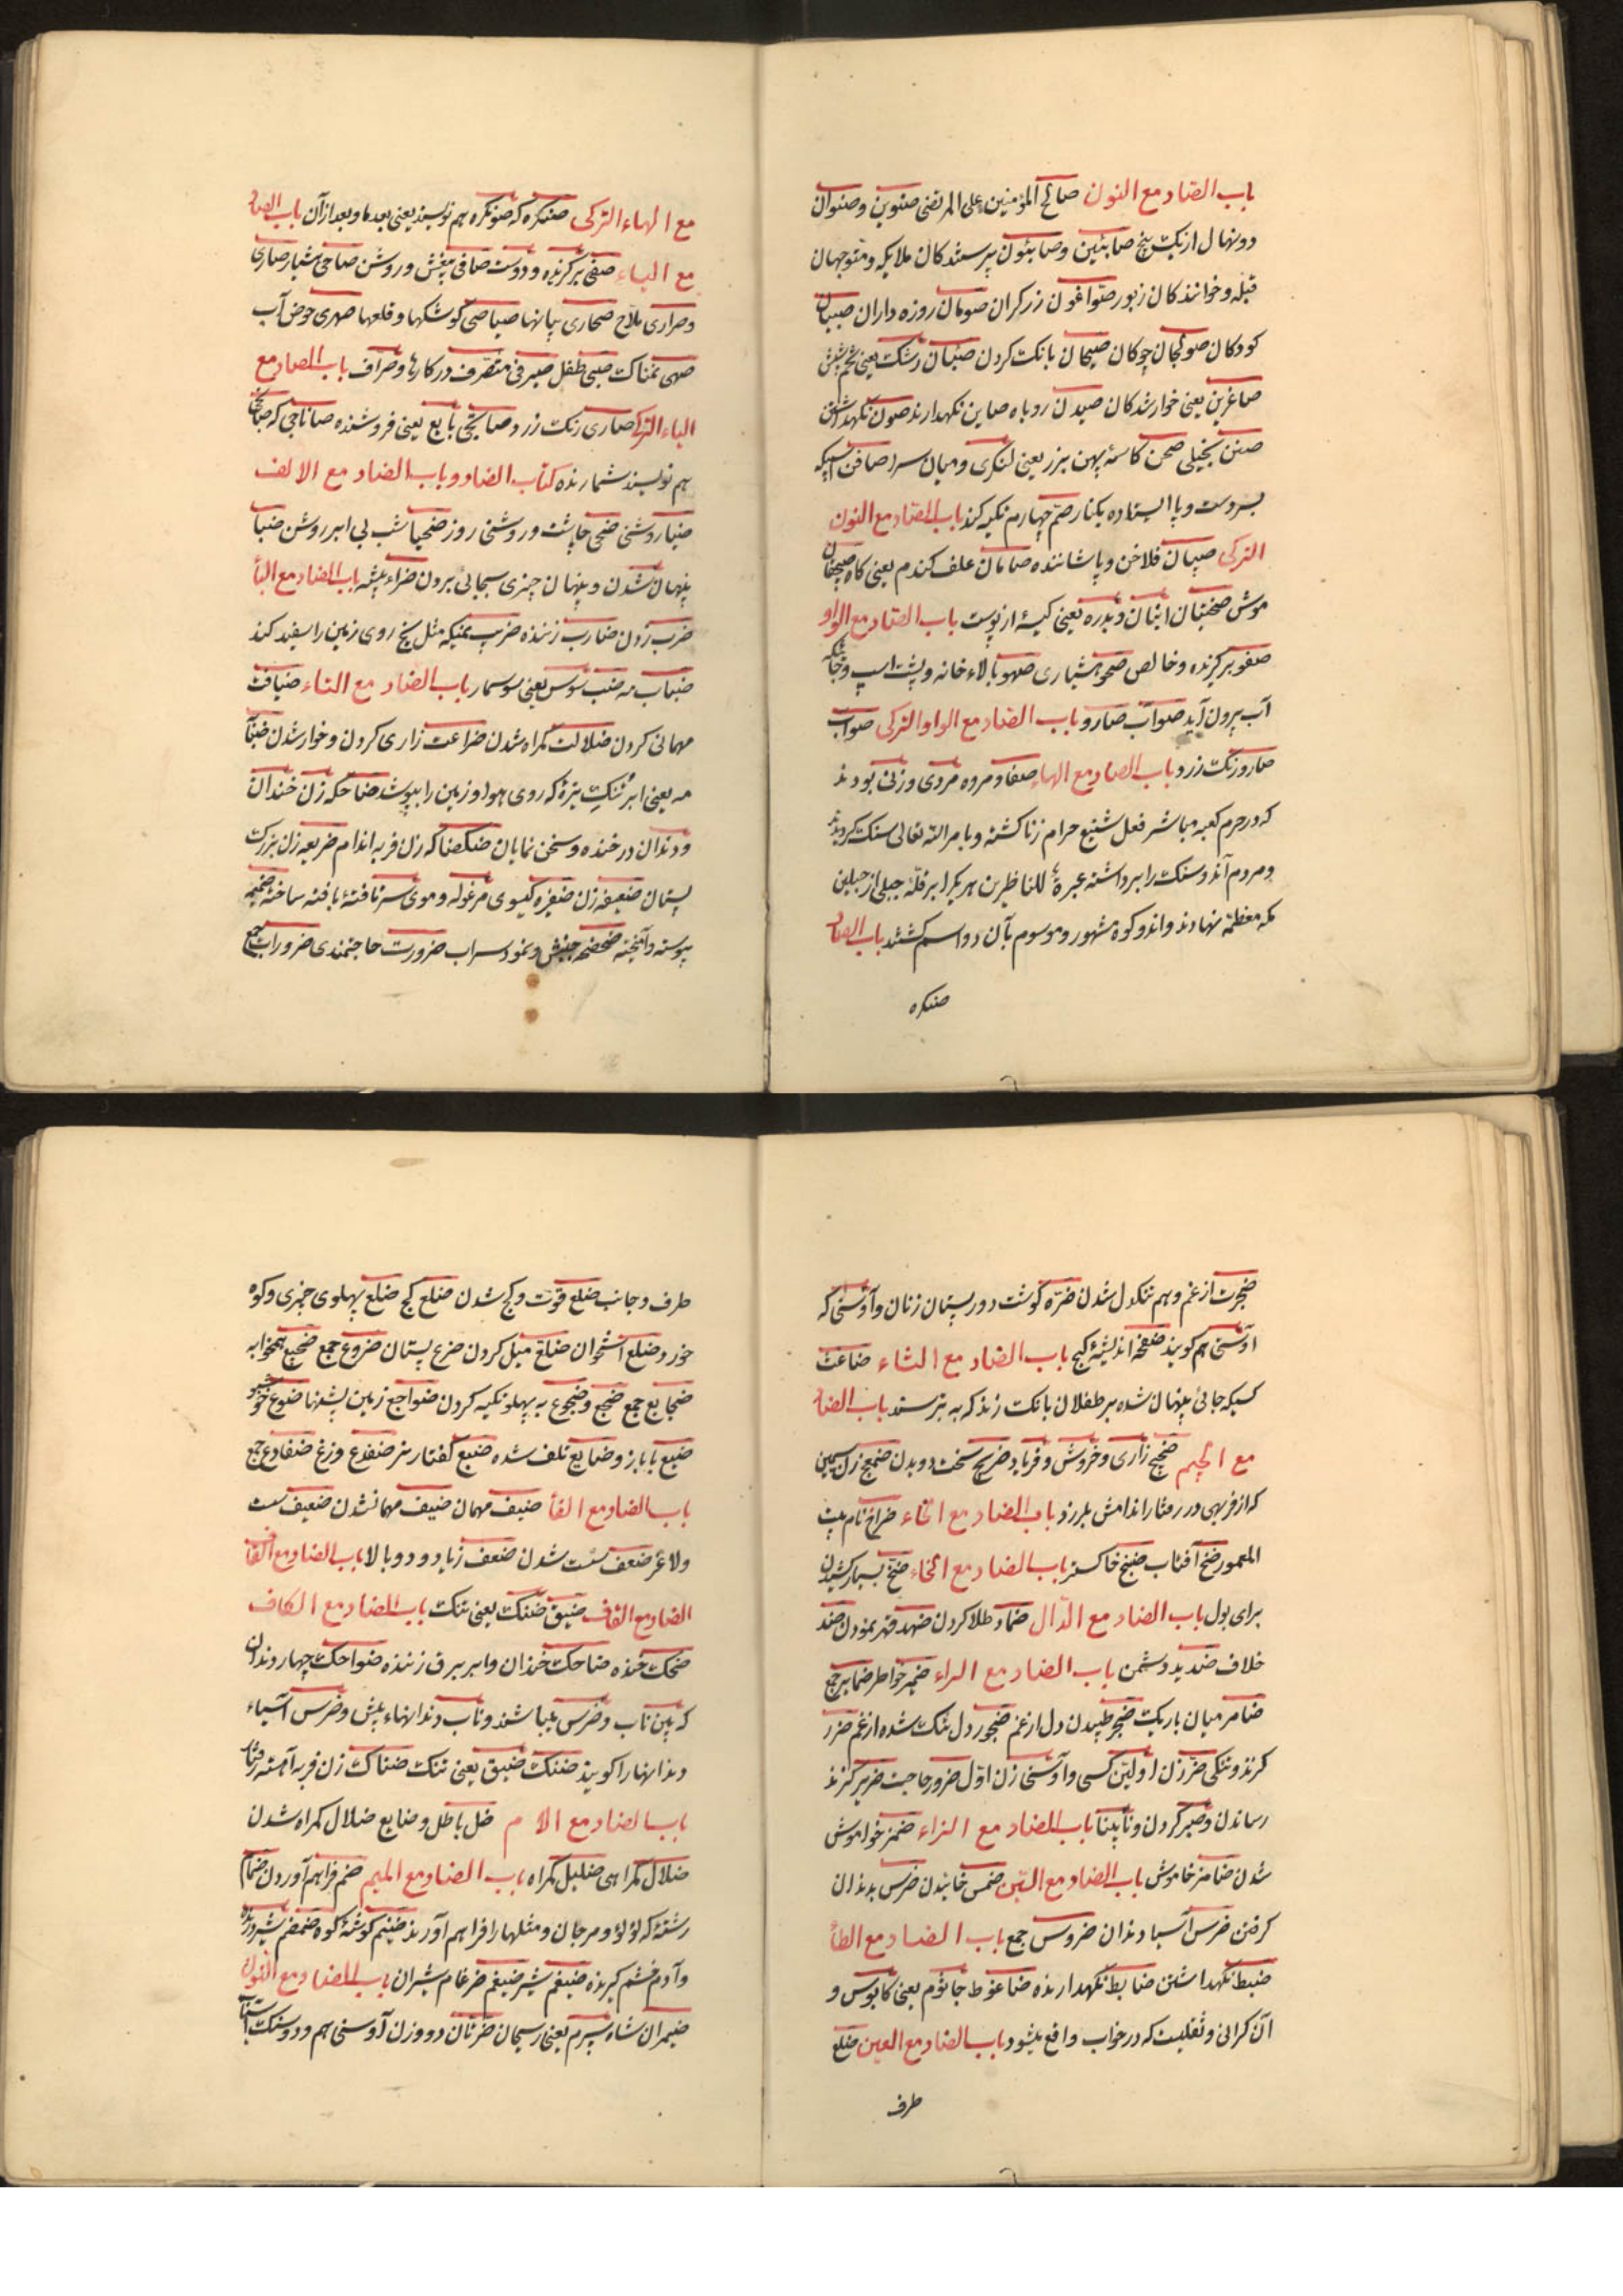 باب الصاد مع النون صالح المؤمنین علی المرتضی صنوین و صنوان
دو نهال از یک بیخ صابئین و صابئون پرستندکان ملایکه و متوجهان
قبله و خوانندکان زبور صواغون زرکران صومان روزه داران صبیان
کودکان صولجان چوکان صیحان بانک کردن صئبان رشک یعنی تخم شپش
صاغرین یعنی خوارشدکان صیدن روباه صاین نکهدارنده صون نکهداشتن
صنن بخیلی صحن کاسهٔ پهن بزرک یعنی لنکری و میان سرا صافن اسپیکه
بر دست و پا ایستاده بکنار سم چهارم تکیه کند باب الصاد مع النون
الترکی صپان فلاخن و پاشاننده صامان علف کندم یعنی کاه صیچقان
موش صحنان انبان و بدره یعنی کیسهٔ از پوست باب الصاد مع الواو
صفو برکزیده و خالص صحو هشیاری صهو بالاء خانه و پشت اسپ و جائیکه
آب بیرون آید صو آب صارو باب الصاد مع الواو الترکی صو آب
صارو زنک زرد باب الصاد مع الهاء صفا و مروه مردی و زنی بودند
که در حرم کعبه مباشر فعل شنیع حرام زنا کشته و بامر الله تعالی سنک کردیدند
و مردم آندو سنک را برداشته عبرة للناظرین هر یکرا بر قلّه جبلی از جبلین
مکه معظمه نهادند و اندو کوه مشهور و موسوم بآن دو اسم کشتند باب الصاد
صنکره
مع الهاء الترکی صنکره که صونکره هم نویسند یعنی بعد ما و بعد از آن باب الصاد
مع الیاء صفی برکزیده و دوست صافی بیغش و روشن صاحی هشیار صاری
و صراری ملاح صحاری بیابانها صیاصی کوشکها و قلعها صهری حوض آب
صهی نمناک صبی طفل صیرفی متصرف در کارها و صراف باب الصاد مع
الیاء الترکی صاری رنک زرد صاتیجی بایع یعنی فروشنده صاناجی که صانجی
هم نویسند شمارنده کتاب الضاد و باب الضاد مع الالف
ضیا روشنی ضحی چاشت و روشنی روز ضحیا شب بی ابر روشن ضبا
پنهان شدن و پنهان چیزی بجائی بردن ضراء بیشه باب الضاد مع الباء
ضرب زدن ضارب زننده ضریب نمیکه مثل یخ روی زمین را سفید کند
ضباب مه ضب سوس یعنی سوسمار باب الضاد مع التاء ضیافت
مهمانی کردن ضلالت کمراه شدن ضراعت زاری کردن و خوار شدن ضبابة
مه یعنی ابر تنک تیره که روی هوا و زمین را بپوشد ضاحکه زن خندان
و دندان در خنده و سخن نمایان ضکضاکه زن فربه اندام ضریعه زن بزرک
پستان ضعیفه زن ضفیره کیسوی مرغوله و موی سر تافتهٔ بافته ساخته ضمیمه
پیوسته و آمیخته ضحضحه جنبش و نمود سراب ضرورت حاجتمندی ضرورات جمع
ضجرت از غم و هم تنکدل شدن ضرّه کوشت دور پستان زنان و آوسنی که
اوسنی هم کویند ضفه اندیشهٔ کج باب الضاد مع الثاء ضاغث
کسیکه جائی پنهان شده بر طفلان بانک زند که به ترسند باب الضاد
مع الجیم ضجیج زاری و خروش و فریاد ضریج سخت دویدن ضمعج زن سمین
که از فربهی در رفتار اندامش بلرزد باب الضاد مع الحاء ضراح نام بیت
المعمور ضح آفتاب ضبح خاکستر باب الضاد مع الخاء ضخ بسیار کشیدن
برای بول باب الضاد مع الدّال ضماد طلا کردن ضهد قهر نمودن ضد
خلاف ضدید دشمن باب الضاد مع الراء ضمیر خواطر ضمایر جمع
ضامر میان باریک ضجر طپیدن دل از غم ضجور دل تنک شده از غم ضرر
کزند و تنکی ضر زن اولین کسی و آوسنی زن اول ضرور حاجت ضریر کزند
رساندن و صبر کردن و نابینا باب الضاد مع الزاء ضمز خواموش
شدن ضامز خاموش باب الضاد مع السّین ضمس خائیدن ضرس بدندان
کرفتن ضرس آسیا دندان ضروس جمع باب الضاد مع الطاء
ضبط نکهداشتن ضابط نکهدارنده ضاغوط جاثوم یعنی کابوس و
آن کرانی و ثقلیت که در خواب واقع میشود باب الضاد مع العین ضلع
طرف
طرف و جانب ضلع قوت و کج شدن ضلع کج ضلع پهلوی چیزی و کوه
خورد ضلع استخوان ضلع میل کردن ضرع پستان ضروع جمع ضجیع همخوابه
ضجایع جمع ضجع و ضجوع به پهلو تکیه کردن ضواجع زمین پشتها ضوع خوشبو
ضیع بابارز و ضایع تلف شده ضبع کفتار نر ضفدع وزغ ضفادع جمع
باب الضاد مع الفاء ضیف مهمان ضیف مهمان شدن ضعیف سست
و لاغر ضعف سست شدن ضعف زیاد و دوبالا باب الضاد مع القاف
الضاد مع القاف ضیق ضنک یعنی تنک باب الضاد مع الکاف
ضحک خنده ضاحک خندان و ابر ببرق زننده ضواحک چهار دندان
که بین ناب و ضرس میباشند و ناب دندانهاء پیش و ضرس آسیاء
دندانهارا کویند ضنک ضیق یعنی تنک ضناک زن فربه آهسته رفتار
باب الضاد مع اللام ضل باطل و ضایع ضلال کمراه شدن
ضلال کمراهی ضلیل کمراه باب الضاد مع المیم ضم فراهم آوردن ضمام
رشته که لؤلؤ و مرجان و مثلهارا فراهم آورند ضیم کوشهٔ کوه ضمضم شیر درنده
و آدم خشم کیرنده ضیغم شیر ضیغم ضرغام شیران باب الضاد مع النون
ضیمران شاه سپرم یعنی ریحان ضرتان دو زن آوسنی هم و دو سنک آسیا